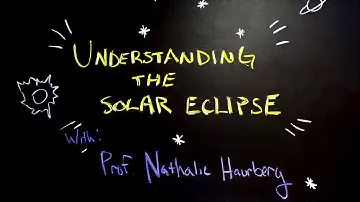 UNDERSTANDING
THE
SOLAR ECLIPSE
With:
Prof. Nathalie Haurberg